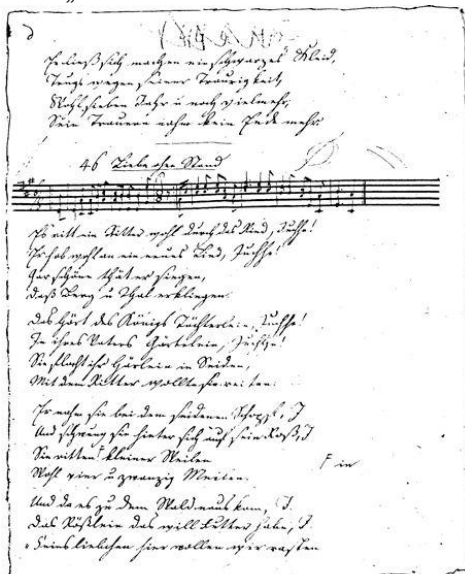 Er ließ sich machen ein schwarzes Kleid,
Trugs wegen seiner Traurigkeit,
Wohl sieben Jahr u noch vielmehr,
Sein Trauern nahm kein Ende mehr.
46 Liebe ohne Stand
Es ritt ein Ritter wohl durch das Ried, Juchhe!
Er hob wohl an ein neues Lied, Juchhe!
Gar schöne thät er singen,
Daß Berg u Thal erklingen.
Das hört des Königs Töchterlein, Juchhe!
In ihres Vaters Gärtelein, Juchhe!
Sie flocht ihr Härlein in Seiden,
Mit dem Ritter wollte sie reiten.
Er nahm sie bei dem seidenen Schopf, J
Und schwung sie hinter sich auf sein Roß, J
Sie ritten F kleiner Weilen
F in
Wohl vier u zwanzig Meilen.
Und da es zu dem Wald naus kam, J.
Das Rößlein das will Futter habe, J.
Feins liebchen hier wollen wir rasten